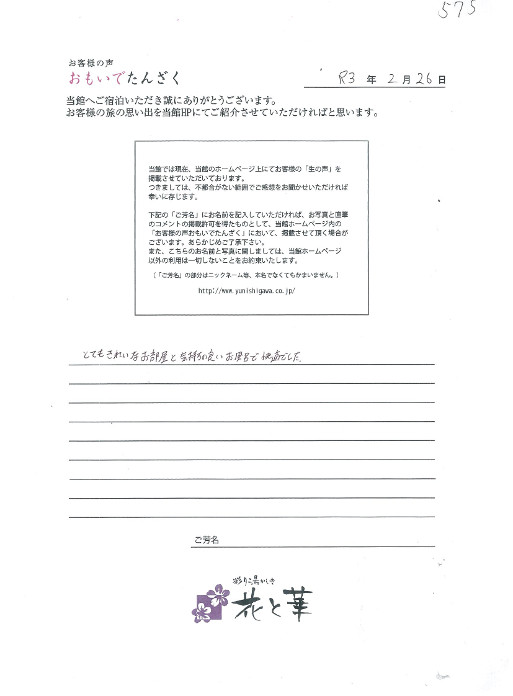 575
お客様の声
おもいでたんざく
R3 年 2 月 26 日
当館へご宿泊いただき誠にありがとうございます。
お客様の旅の思い出を当館HPにてご紹介させていただければと思います。
当館では現在、当館のホームページ上にてお客様の「生の声」を
掲載させていただいております。
つきましては、不都合がない範囲でご感想をお聞かせいただければ
幸いに存じます。
下記の「ご芳名」にお名前を記入していただければ、お写真と直筆
のコメントの掲載許可を得たものとして、当館ホームページ内の
「お客様の声おもいでたんざく」において、掲載させて頂く場合が
ございます。あらかじめご了承下さい。
また、こちらのお名前と写真に関しましては、当館ホームページ
以外の利用は一切しないことをお約束いたします。
(「ご芳名」の部分はニックネーム等、本名でなくてもかまいません。)
http://www.yunishigawa.co.jp/
とてもきれいなお部屋と気持ち良いお風呂で快適でした
ご芳名
彩り湯かしき
花と華